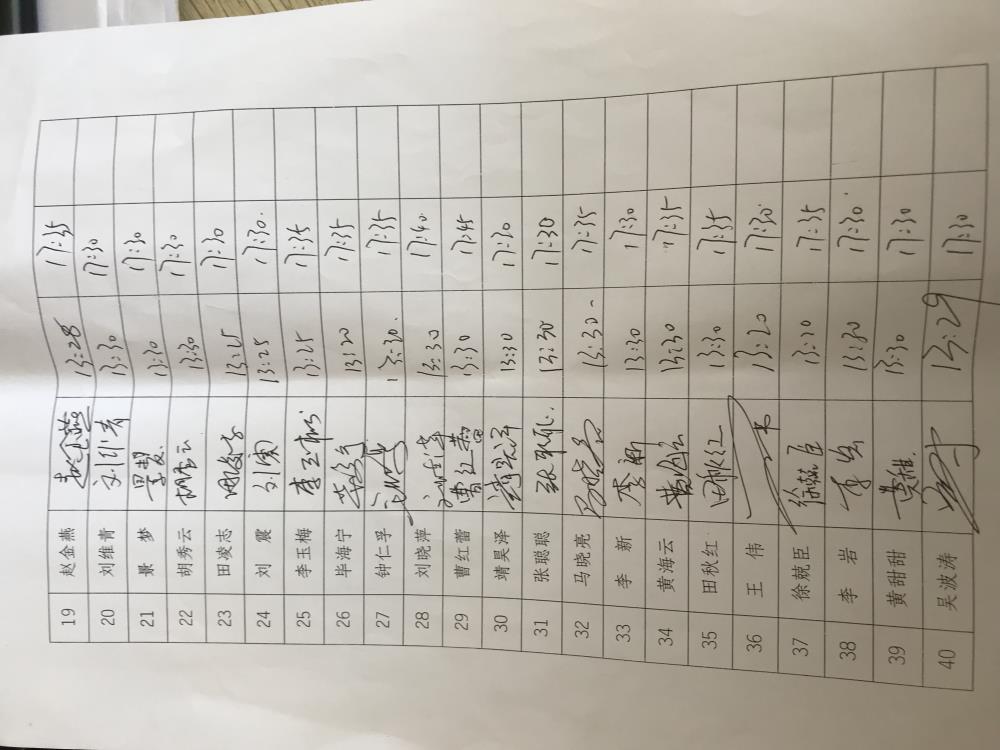 19 赵金燕 赵金燕 13:28 17:35
20 刘维青 刘维青 13:30 17:30
21 景 梦 景梦 13:30 17:30
22 胡秀云 胡秀云 13:30 17:30
23 田凌志 田凌志 13:25 17:30
24 刘 震 刘震 13:25 17:30.
25 李玉梅 李玉梅 13:25 17:35
26 毕海宁 毕海宁 13:20 17:35
27 钟仁孚 13:30. 17:35
28 刘晓萍 刘晓萍 13:30 17:40
29 曹红蕾 曹红蕾 13:30 17:45
30 靖昊泽 靖昊泽 13:30 17:30
31 张聪聪 13:30 17:30
32 马晓亮 马晓亮 13:30 17:35
33 李 新 李新 13:30 17:30
34 黄海云 黄海云 13:30 17:35
35 田秋红 田秋红 13:30 17:35
36 王 伟 13:20 17:30.
37 徐兢臣 徐兢臣 13:20 17:35
38 李 岩 李岩 13:30 17:30.
39 黄甜甜 13:30 17:30
40 吴波涛 13:29 17:30